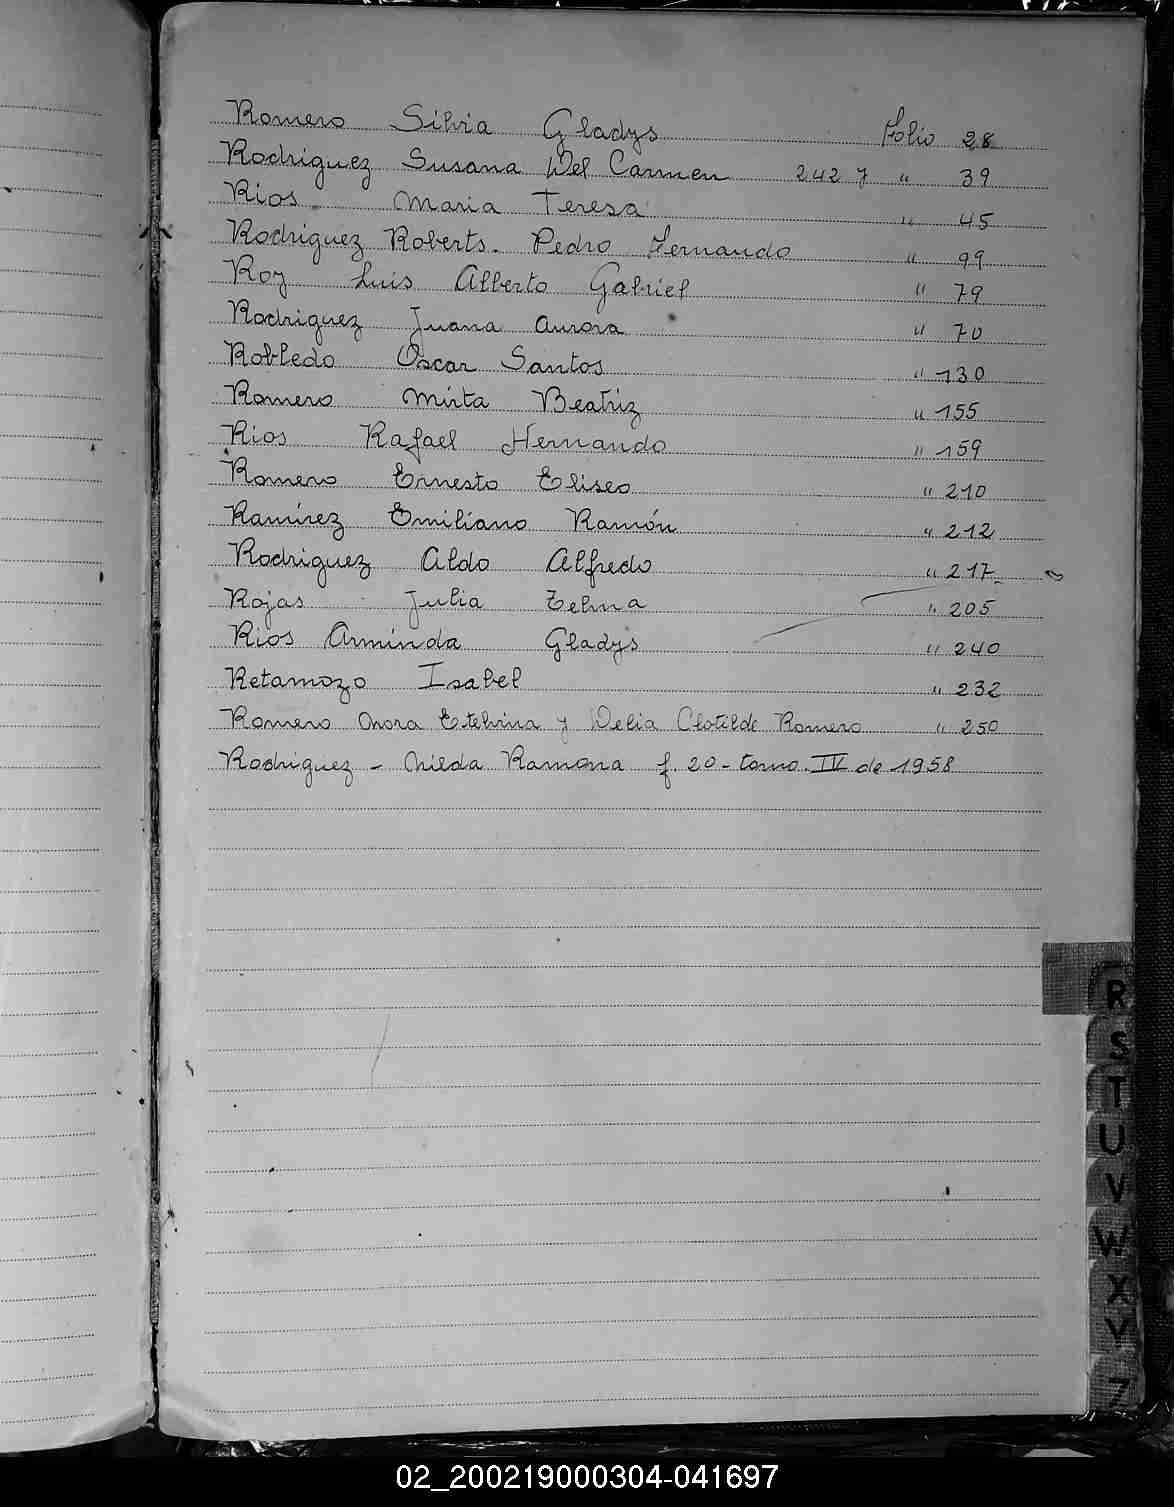 Romero Silvia Gladys Folio 28
Rodriguez Susana Del Carmen 242 7 " 39
Rios Maria Teresa " 45
Rodriguez Roberts. Pedro Fernando " 99
Roy Luis Alberto Gabriel " 79
Rodriguez Juana Aurora " 70
Robledo Oscar Santos " 130
Romero Mirta Beatriz " 155
Rios Rafael Hernando " 159
Romero Ernesto Eliseo " 210
Ramírez Emiliano Ramón " 212
Rodriguez Aldo Alfredo " 217
Rojas Julia Telma " 205
Rios Arminda Gladys " 240
Retamozo Isabel " 232
Romero Nora Etelvina y Delia Clotilde Romero " 250
Rodriguez - Nilda Ramona f. 20 - tomo. IV de 1958
R
S
T
U
V
W
X
Y
Z
02_200219000304-041697